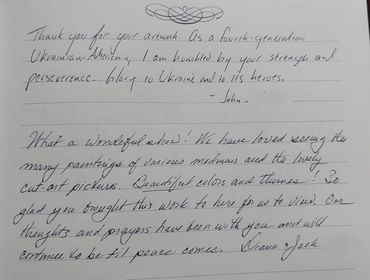 Thank you for your artwork. As a fourth-generation
Ukrainian-American, I am humbled by your strength and
perseverence. Glory to Ukraine and to its heroes.
- John.
What a wonderful show! We have loved seeing the
many paintings of various mediums and the lovely
cut-art pictures. Beautiful colors and themes! So
glad you brought this work to here for us to view. Our
thoughts and prayers have been with you and will
continue to be til peace comes. Diana & Jack